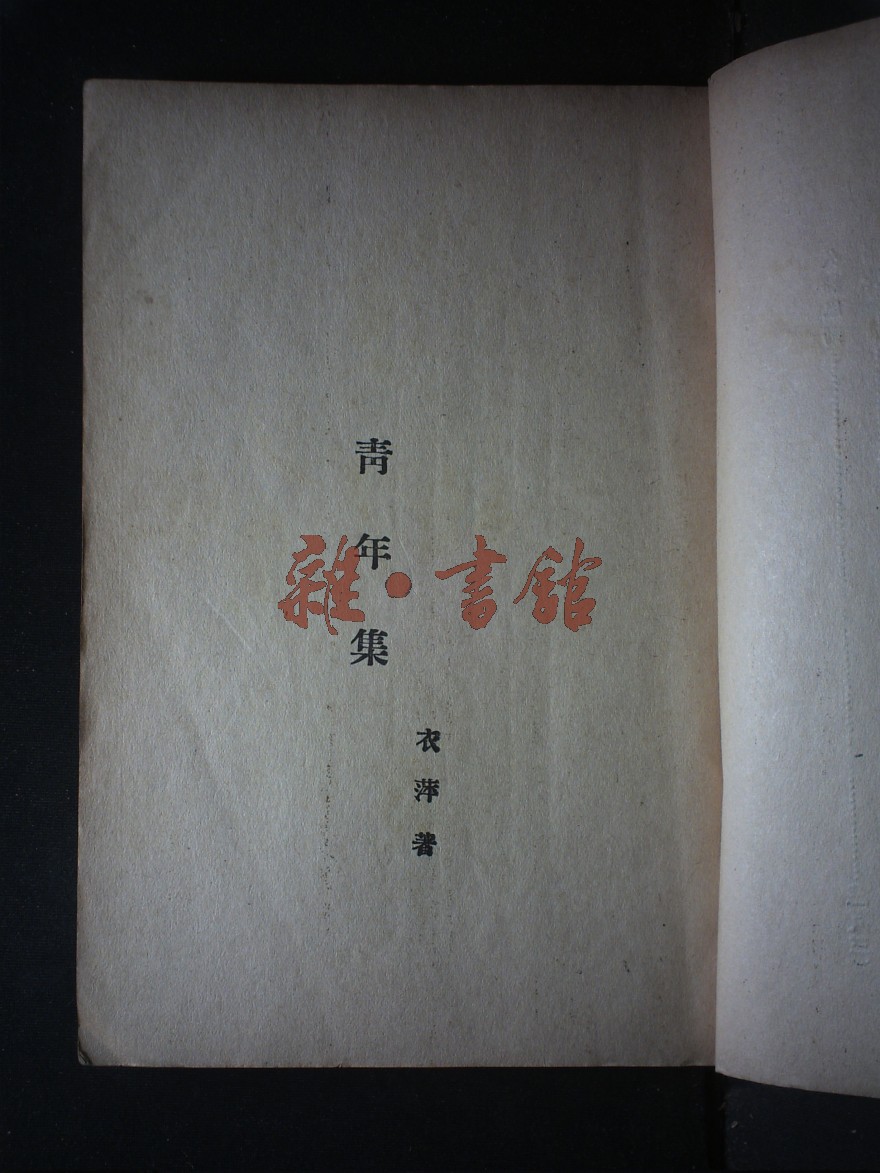 青年集
衣萍著
雜·書館